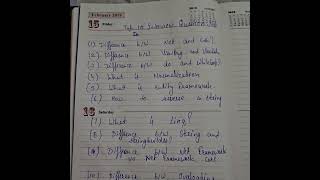 February 2019
15 Friday
Top 10 Interview Question
In
(1) Difference b/w .Net and C#?
(2) Difference b/w Verity and Varish
(3) Difference b/w do and while loop?
(4) What is Normalization
(5) What is Entity Framework
(6) How to reverse a string
16 Saturday
(7) What is Linq?
(8) Difference b/w String and
stringbuilder?
(9) Difference b/w .Net Framework
vs .Net Framework Core
(10) Difference b/w Overloading